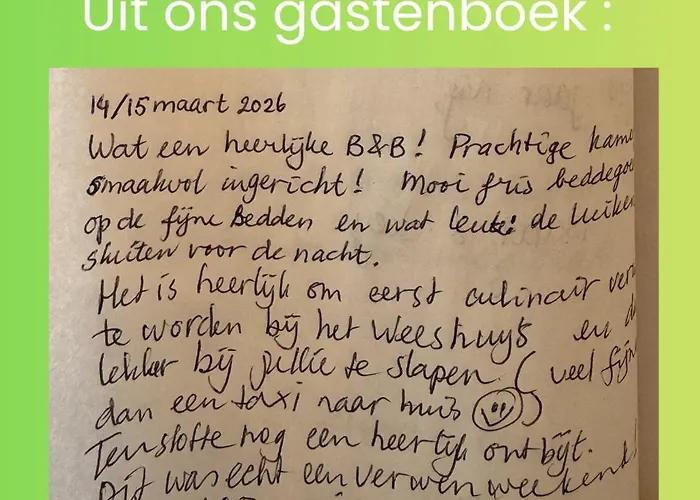 Uit ons gastenboek :
14/15 maart 2026
Wat een heerlijke B&B! Prachtige kame
smaakvol ingericht! Mooi fris beddegoe
op de fijne bedden en wat leuk: de luiken
sluiten voor de nacht.
Het is heerlijk om eerst culinair verw
te worden bij het Weeshuys en d
lekker bij jullie te slapen. (veel fijn
dan een taxi naar huis)
Tenslotte nog een heerlijk ontbijt.
Dit was echt een verwenweekend!